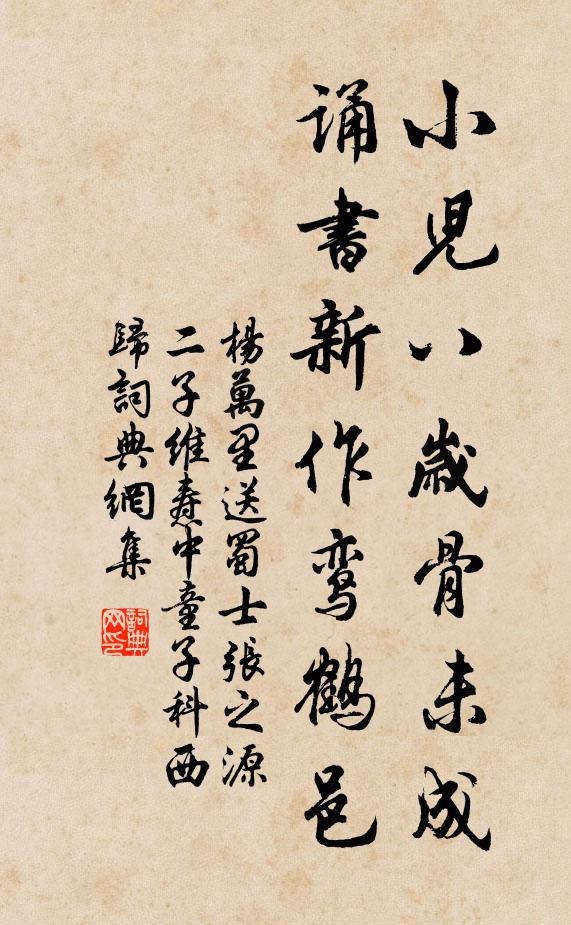 小兒八歲骨未成
誦書新作鸾鶴邑
楊萬里送蜀士張之源
二子維焘中童子科西
歸詞典網集
詞典
网印